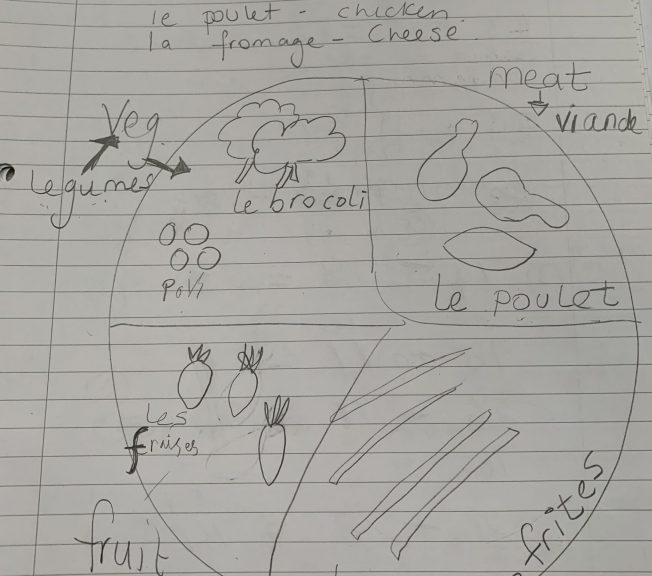 le poulet - chicken
la fromage - Cheese.
meat
viande
Veg
Legumes
le brocoli
Pois
le poulet
les
fraises
fruit
frites